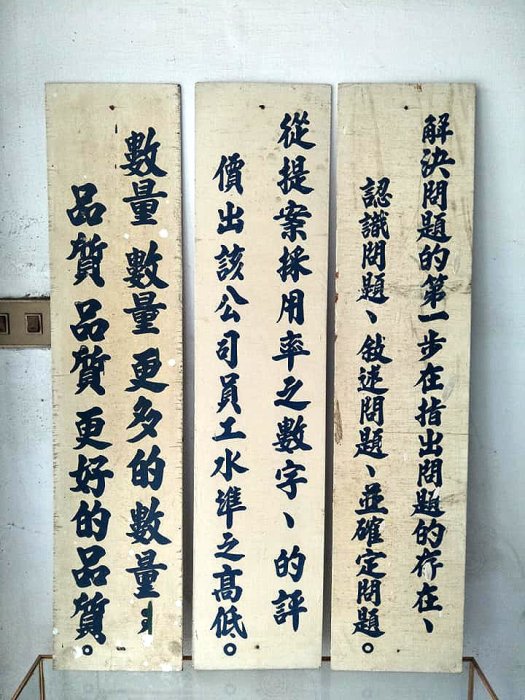 解決問題的第一步在指出問題的存在、
認識問題、敍述問題、並確定問題。
從提案採用率之數字、的評
價出該公司員工水準之高低。
數量 數量 更多的數量
品質 品質 更好的品質。